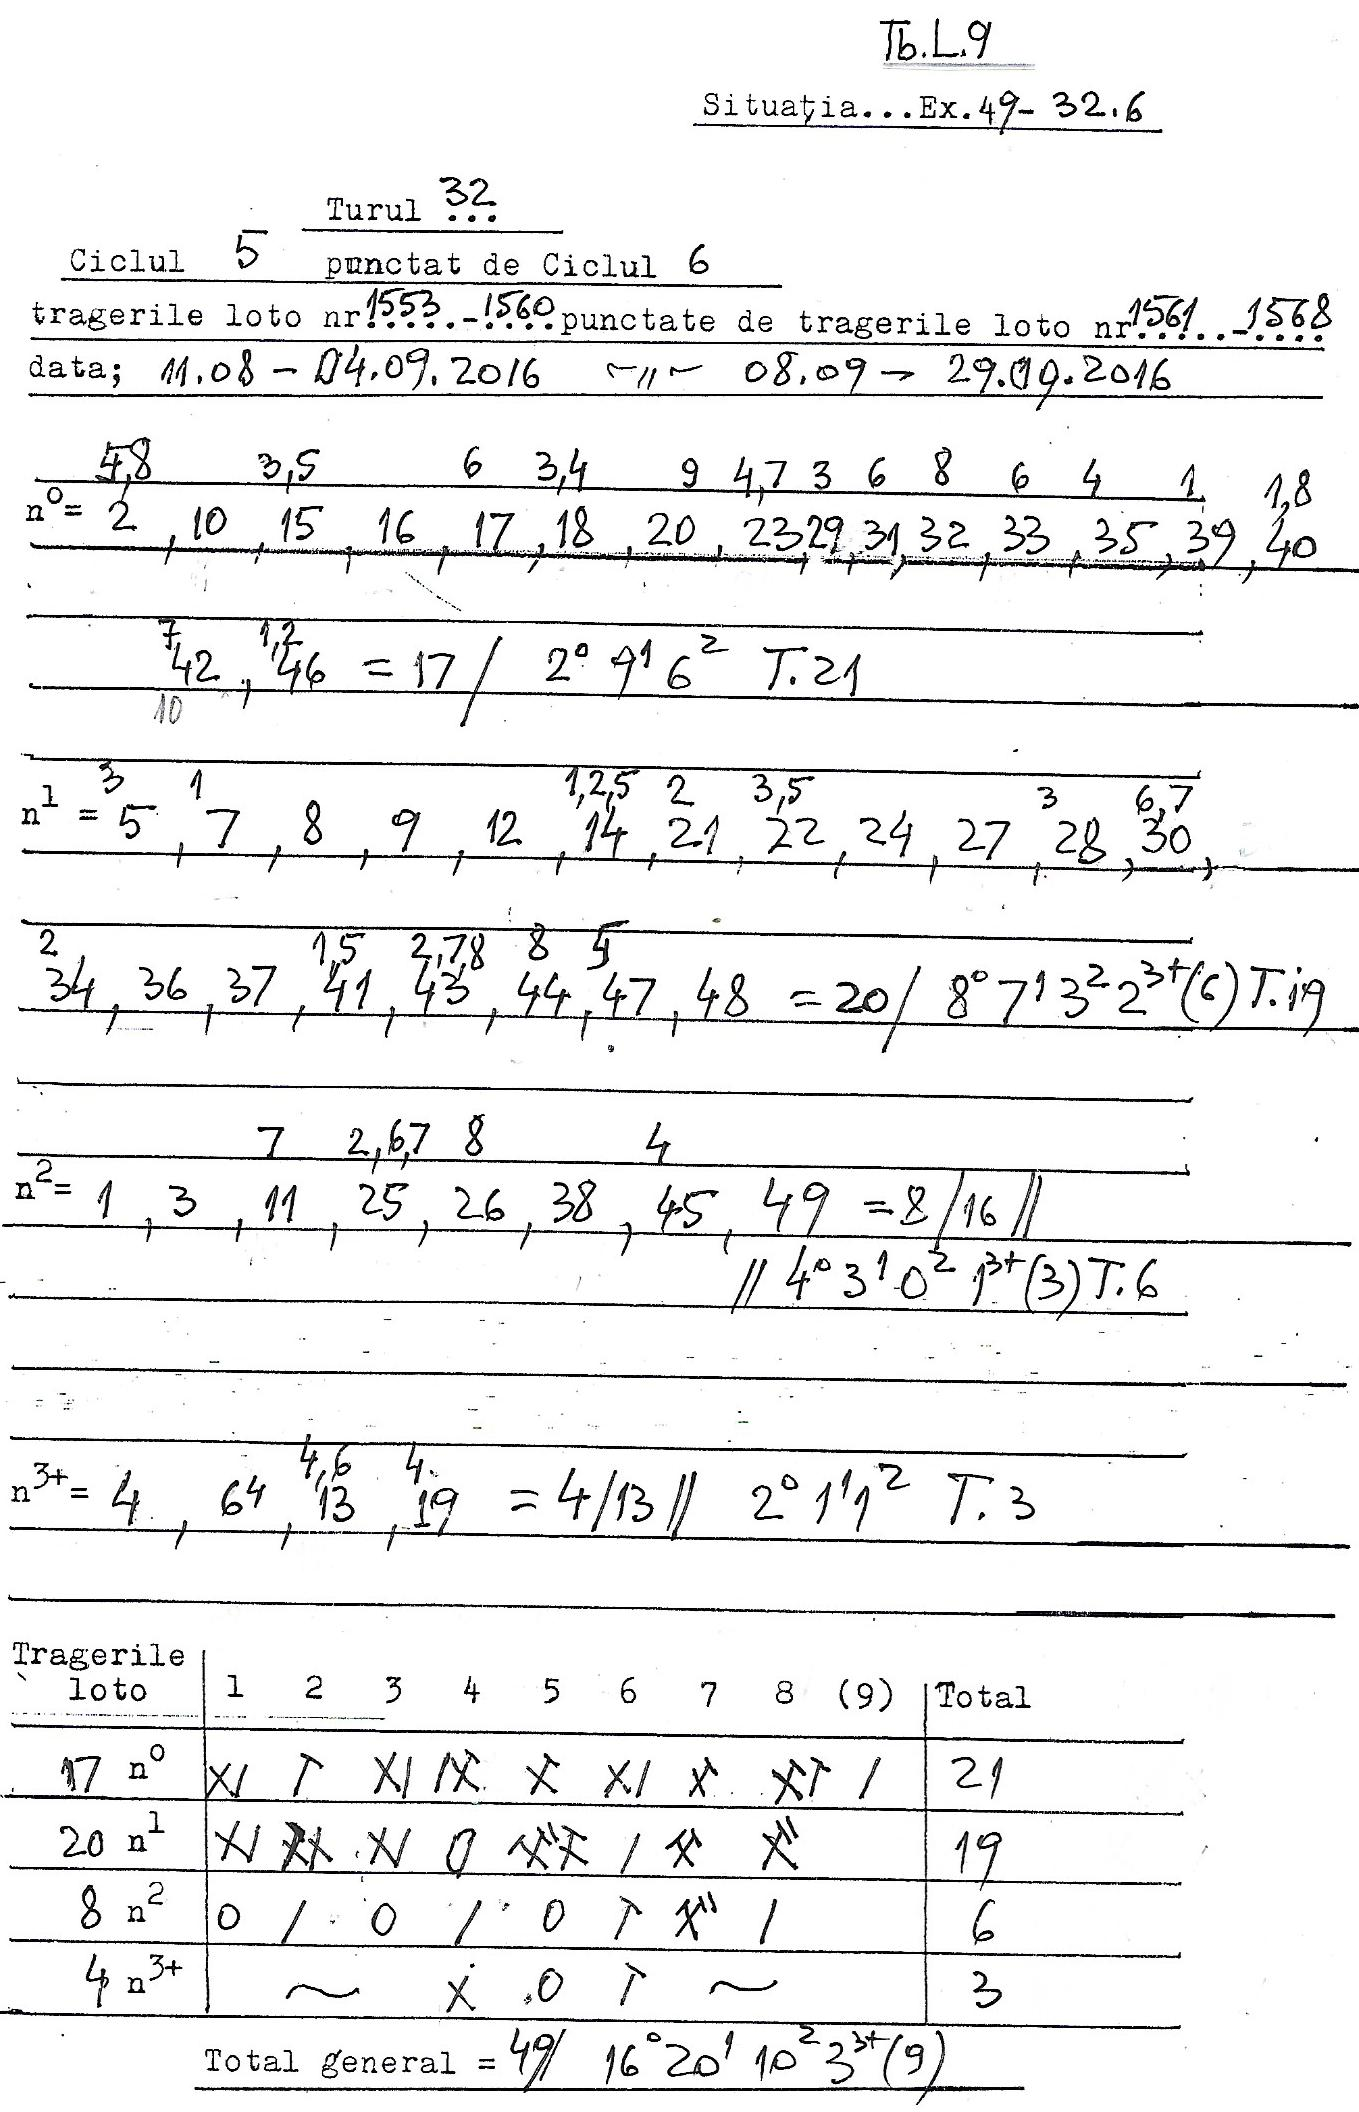 Tb.L.9
Situația...Ex.49- 32.6
Turul 32
Ciclul 5 punctat de Ciclul 6
tragerile loto nr.1553.-1560.punctate de tragerile loto nr.1561..-1568
data; 11.08 - 04.09.2016 ~//~ 08.09 - 29.09.2016
4,8 3,5 6 3,4 9 4,7 3 6 8 6 4 1 1,8
n⁰= 2, 10, 15, 16, 17, 18, 20, 23, 29, 31, 32, 33, 35, 39, 40
7 1,2
42, 46 = 17 / 2⁰ 9¹ 6² T.21
10
3 1 1,2,5 2 3,5 3 6,7
n¹ = 5, 7, 8, 9, 12, 14, 21, 22, 24, 27, 28, 30,
2 1,5 2,7,8 8 5
34, 36, 37, 41, 43, 44, 47, 48 = 20/ 8⁰ 7¹ 3² 2³⁺(6) T.19
7 2,6,7 8 4
n²= 1, 3, 11, 25, 26, 38, 45, 49 = 8/16//
// 4⁰ 3¹ 0² 1³⁺(3) T.6
4,6 4
n³⁺= 4, 6⁴, 13, 19, = 4/13// 2⁰ 1¹ 1² T.3
Tragerile
loto 1 2 3 4 5 6 7 8 (9) Total
17 n⁰ 21
20 n¹ 0 19
8 n² 0 / 0 / 0 / 6
4 n³⁺ ~ 0 ~ 3
Total general = 49// 16⁰ 20¹ 10² 3³⁺(9)